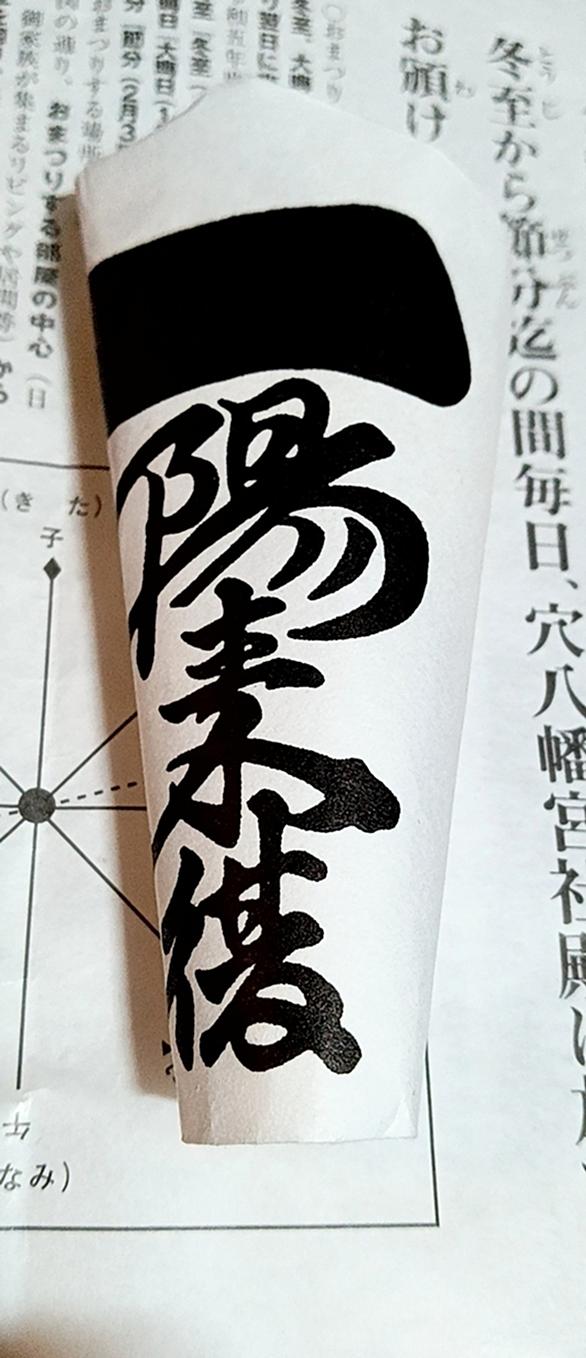 冬至から節分迄の間毎日、穴八幡宮社殿
お頒け
○おまつり
冬至、大晦
冬至（冬至（
晦日（大晦日（1
分（節分（2月3
おまつりする場所
の通り、おまつりする部屋の中心（日
御家族が集まるリビングや居間等）から
（きた）
子
午
なみ）
一陽来復